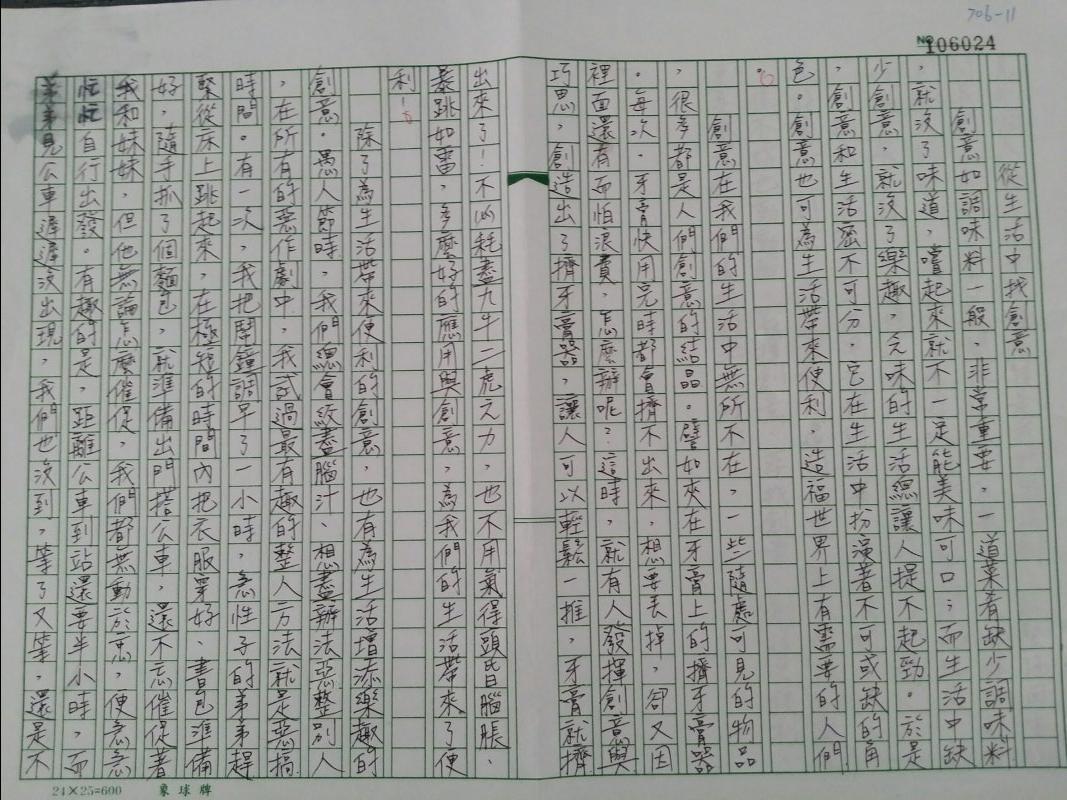 706-11
NO 106024
從生活中找創意
創意如調味料一般，非常重要，一道菜若缺少調味料
，就沒了味道，嚐起來就不一定能美味可口；而生活中缺
少創意，就沒了樂趣，乏味的生活總讓人提不起勁。於是
，創意和生活密不可分，它在生活中扮演著不可或缺的角
色。創意也可為生活帶來便利，造福世界上有需要的人們
。
創意在我們的生活中無所不在，一些隨處可見的物品
，很多都是人們創意的結晶。譬如夾在牙膏上的擠牙膏器
。每次，牙膏快用完時都會擠不出來，想要丟掉，卻又因
裡面還有而怕浪費，怎麼辦呢？這時，就有人發揮創意與
巧思，創造出了擠牙膏器，讓人可以輕鬆一推，牙膏就擠
出來了！不必耗盡九牛二虎之力，也不用氣得頭昏腦脹、
暴跳如雷，多麼好的應用與創意，為我們的生活帶來了便
利！
除了為生活帶來便利的創意，也有為生活增添樂趣的
創意。愚人節時，我們總會絞盡腦汁、想盡辦法惡整別人
，在所有的惡作劇中，我試過最有趣的整人方法就是惡搞
時間。有一次，我把鬧鐘調早了一小時，急性子的弟弟趕
緊從床上跳起來，在極短的時間內把衣服穿好、書包準備
好，隨手抓了個麵包，就準備出門搭公車，還不忘催促著
我和妹妹，但他無論怎麼催促，我們都無動於衷，便急急
忙忙自行出發。有趣的是，距離公車到站還要半小時，而
弟弟見公車遲遲沒出現，我們也沒到，等了又等，還是不
24×25=600 象球牌